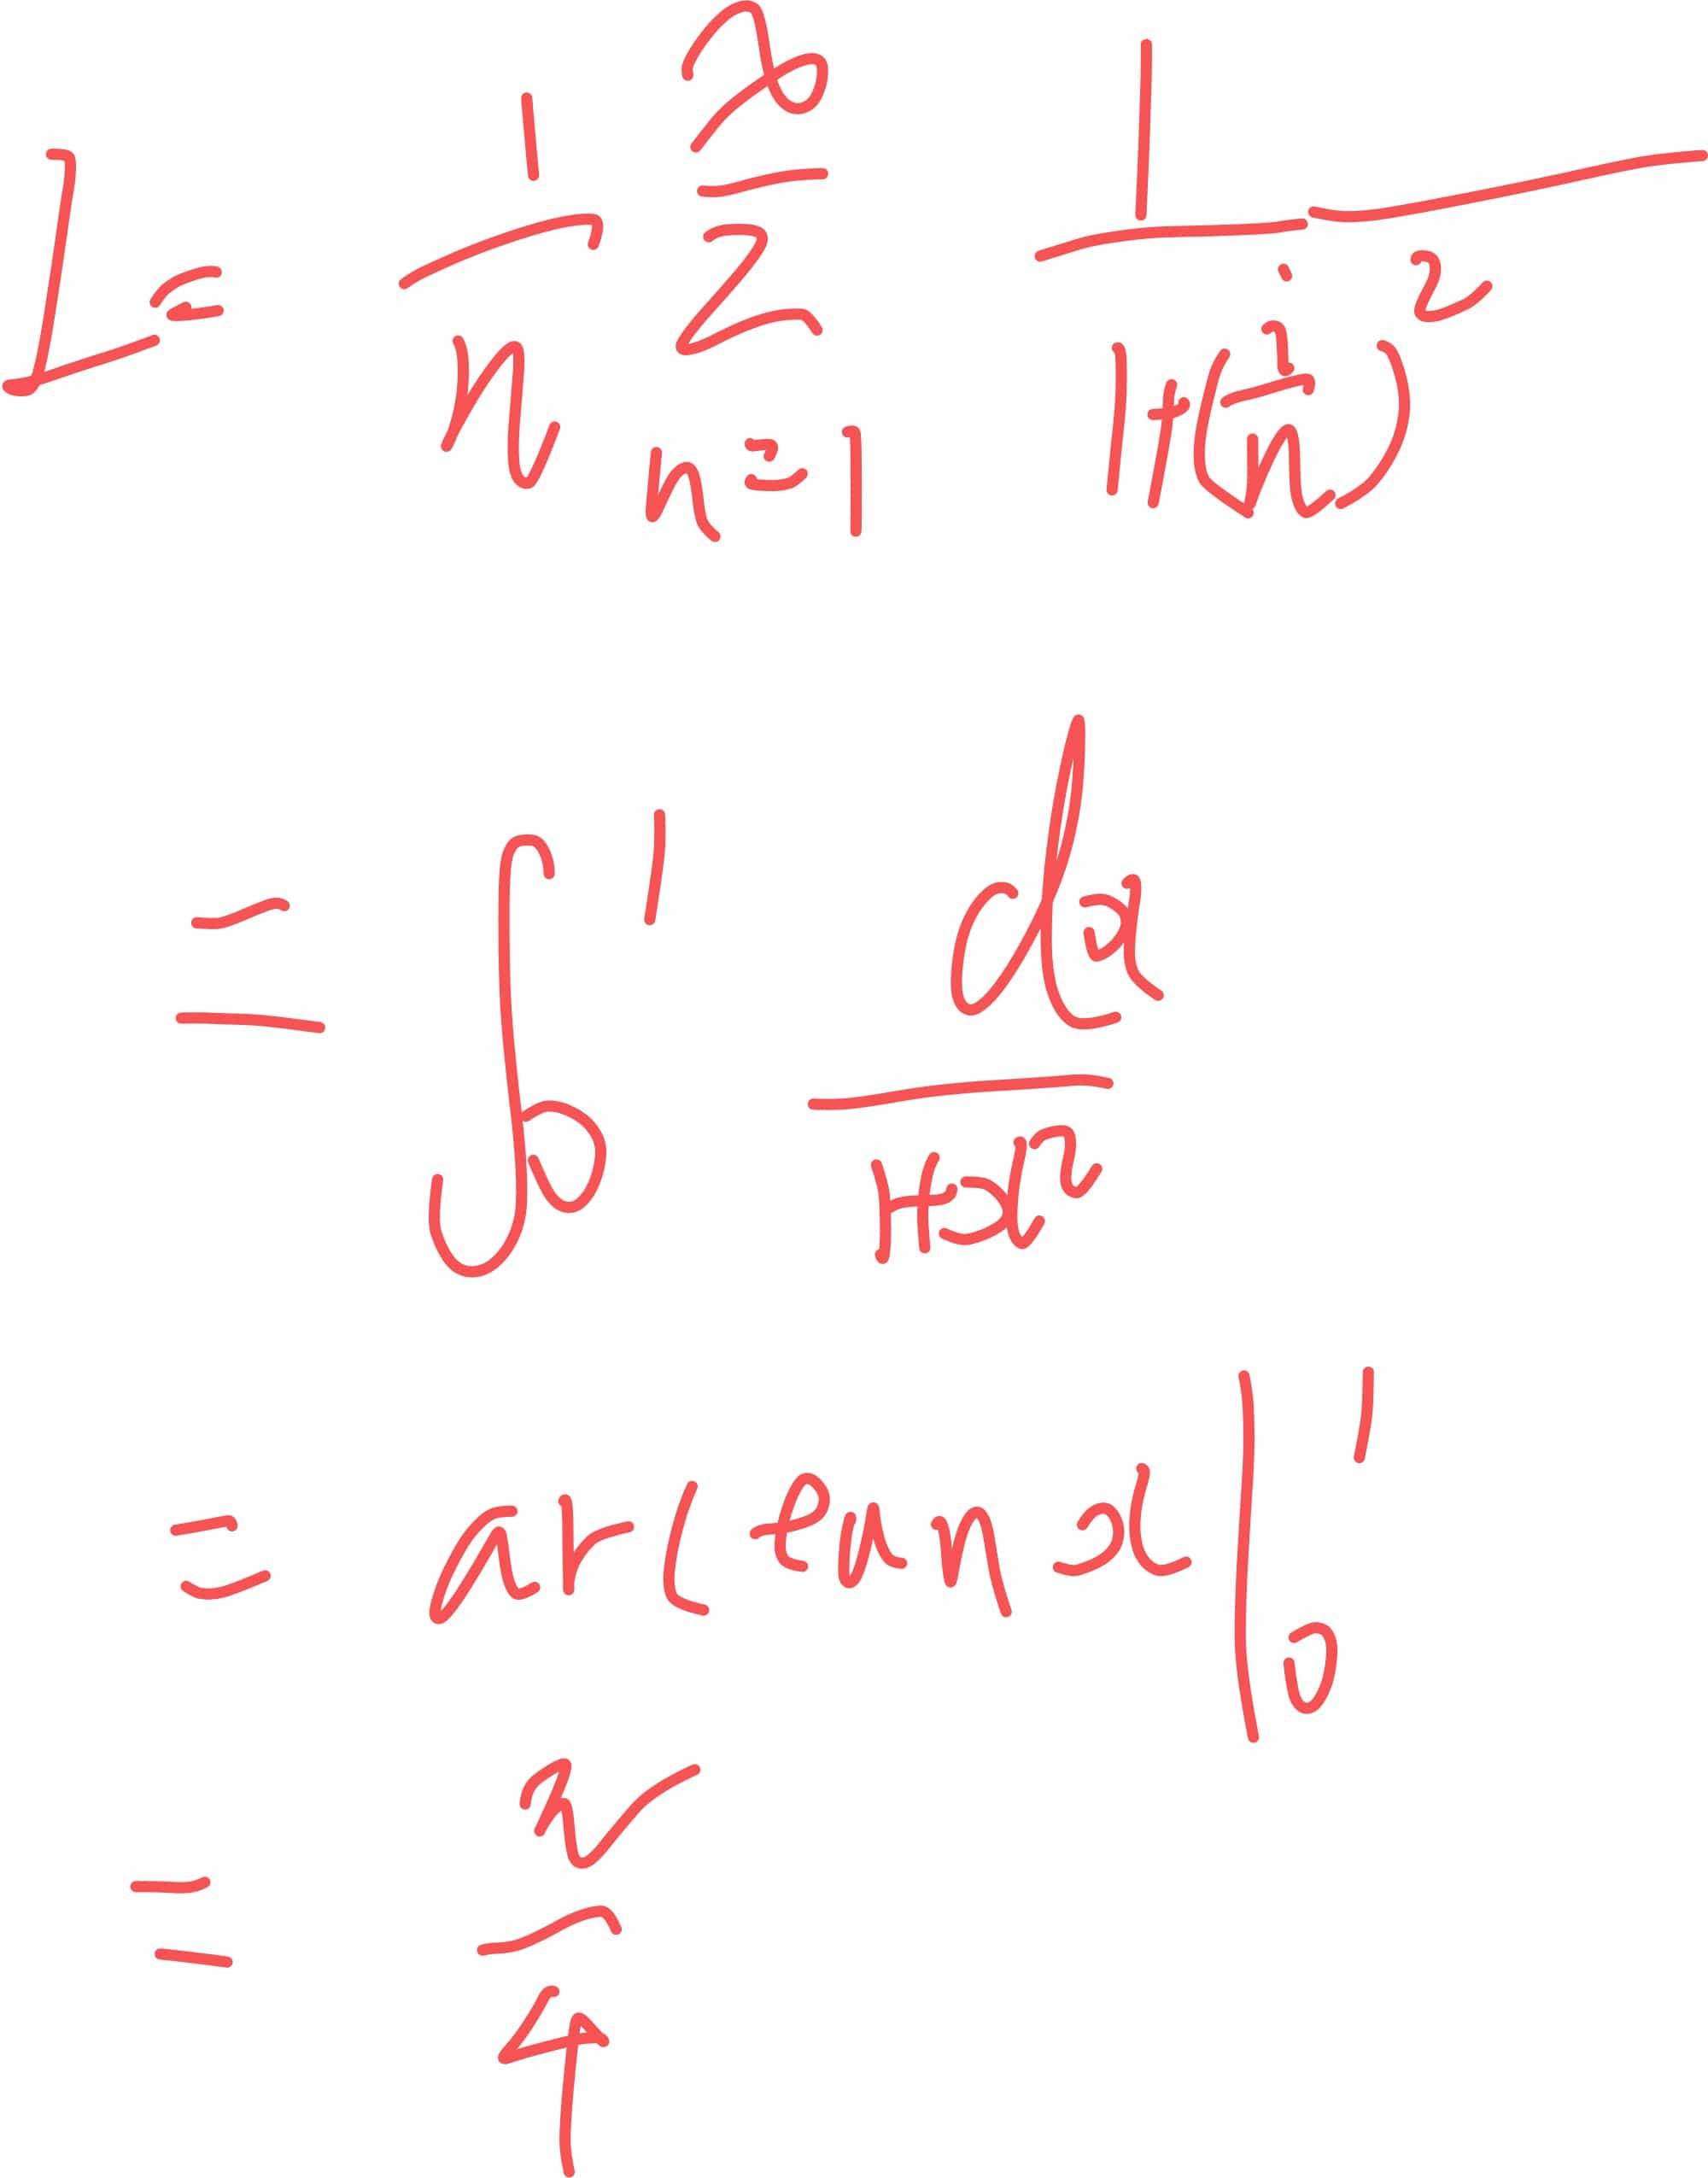 I = 1/n ∞∑n=1 1/(1+(i/n)²)
= ∫₀¹ dx/(1+x²)
= arctan x |₀¹
= π/4